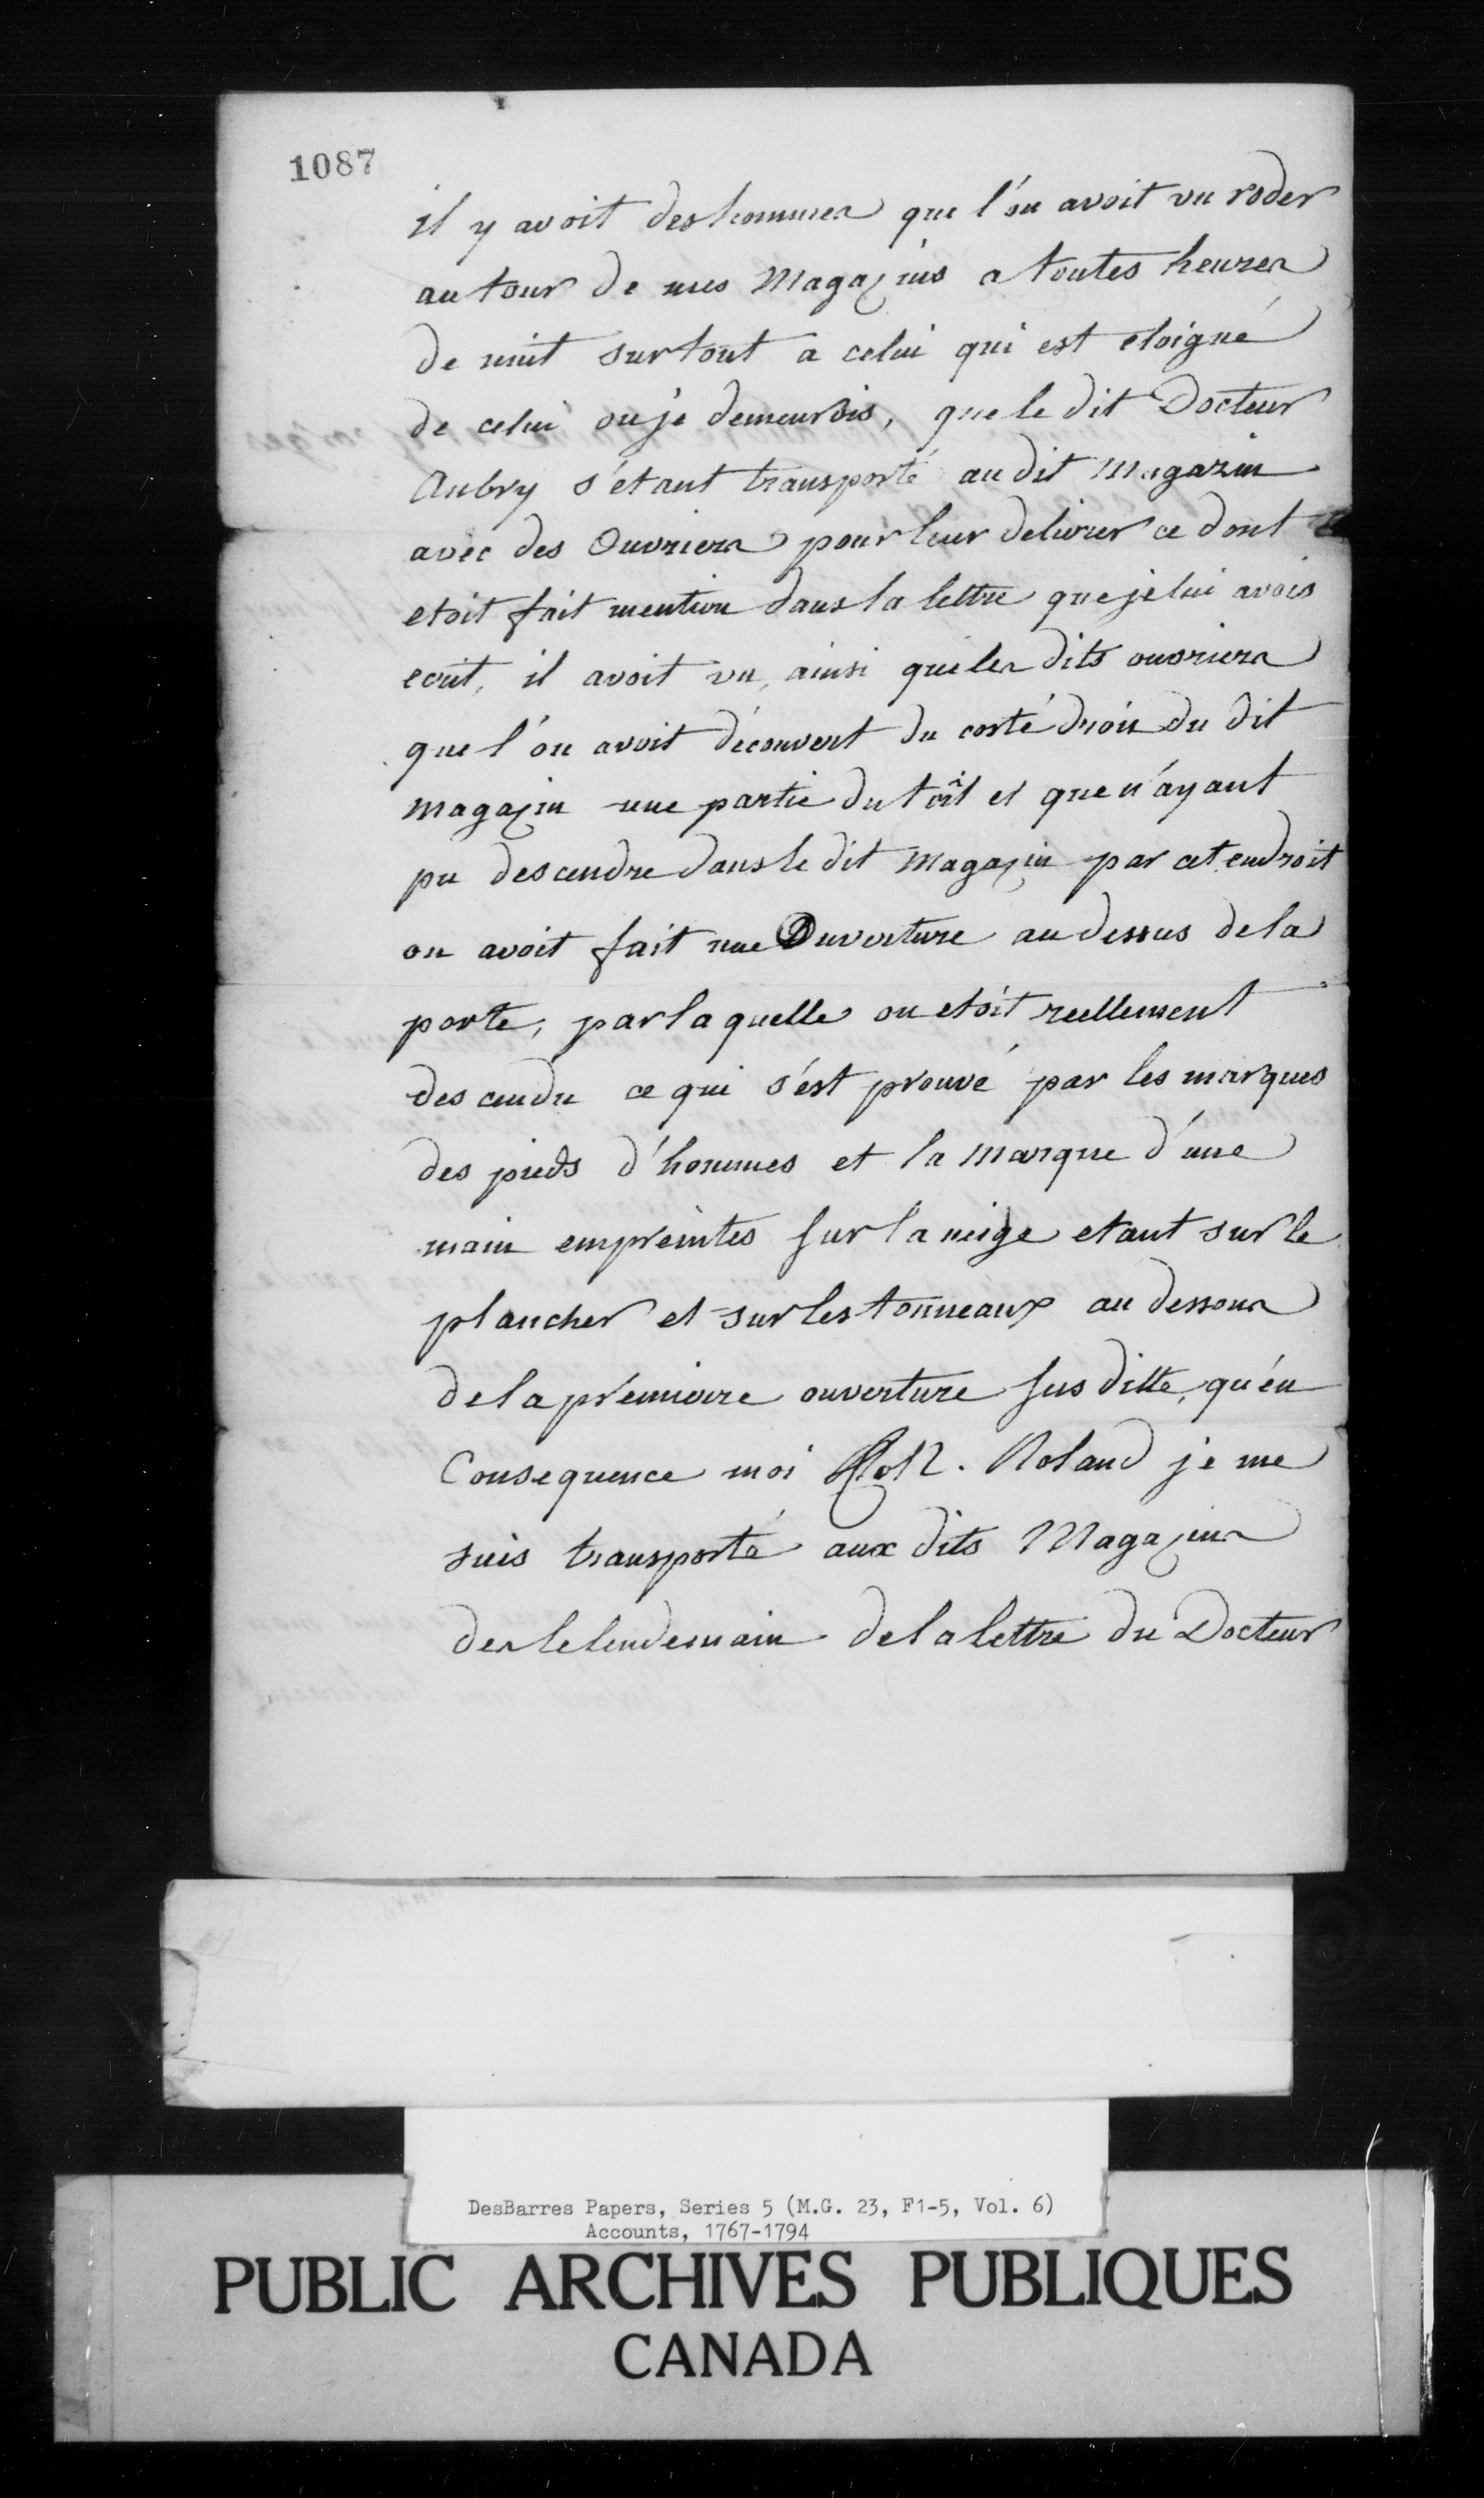 1087
il y avoit des hommes que l'on avoit vu roder
au tour de mes Magazins a toutes heures
de nuit surtout a celui qui est eloigné
de celui ou je demeurois, que le dit Docteur
Aubry s'etant transporté au dit magazin
avec des Ouvriers pour leur delivrer ce dont
etoit fait mention dans la lettre que je lui avois
ecrit, il avoit vu, ainsi que les dits ouvriers
que l'on avoit découvert du costé droit du dit
magazin une partie du toît et que n'ayant
pu descendre dans le dit magazin par cet endroit
on avoit fait une Ouverture au dessus de la
porte, par laquelle on etoit reellement
descendu ce qui s'est prouvé par les marques
des pieds d'hommes et la marque d'une
main empreintes sur la neige etant sur le
plancher et sur les tonneaux au dessous
de la prémiere ouverture sus ditte, qu'en
Consequence moi Roland je me
suis transporté aux dits Magazins
des le lendemain de la lettre du Docteur
DesBarres Papers, Series 5 (M.G. 23, F1-5, Vol. 6)
Accounts, 1767-1794
PUBLIC ARCHIVES PUBLIQUES
CANADA